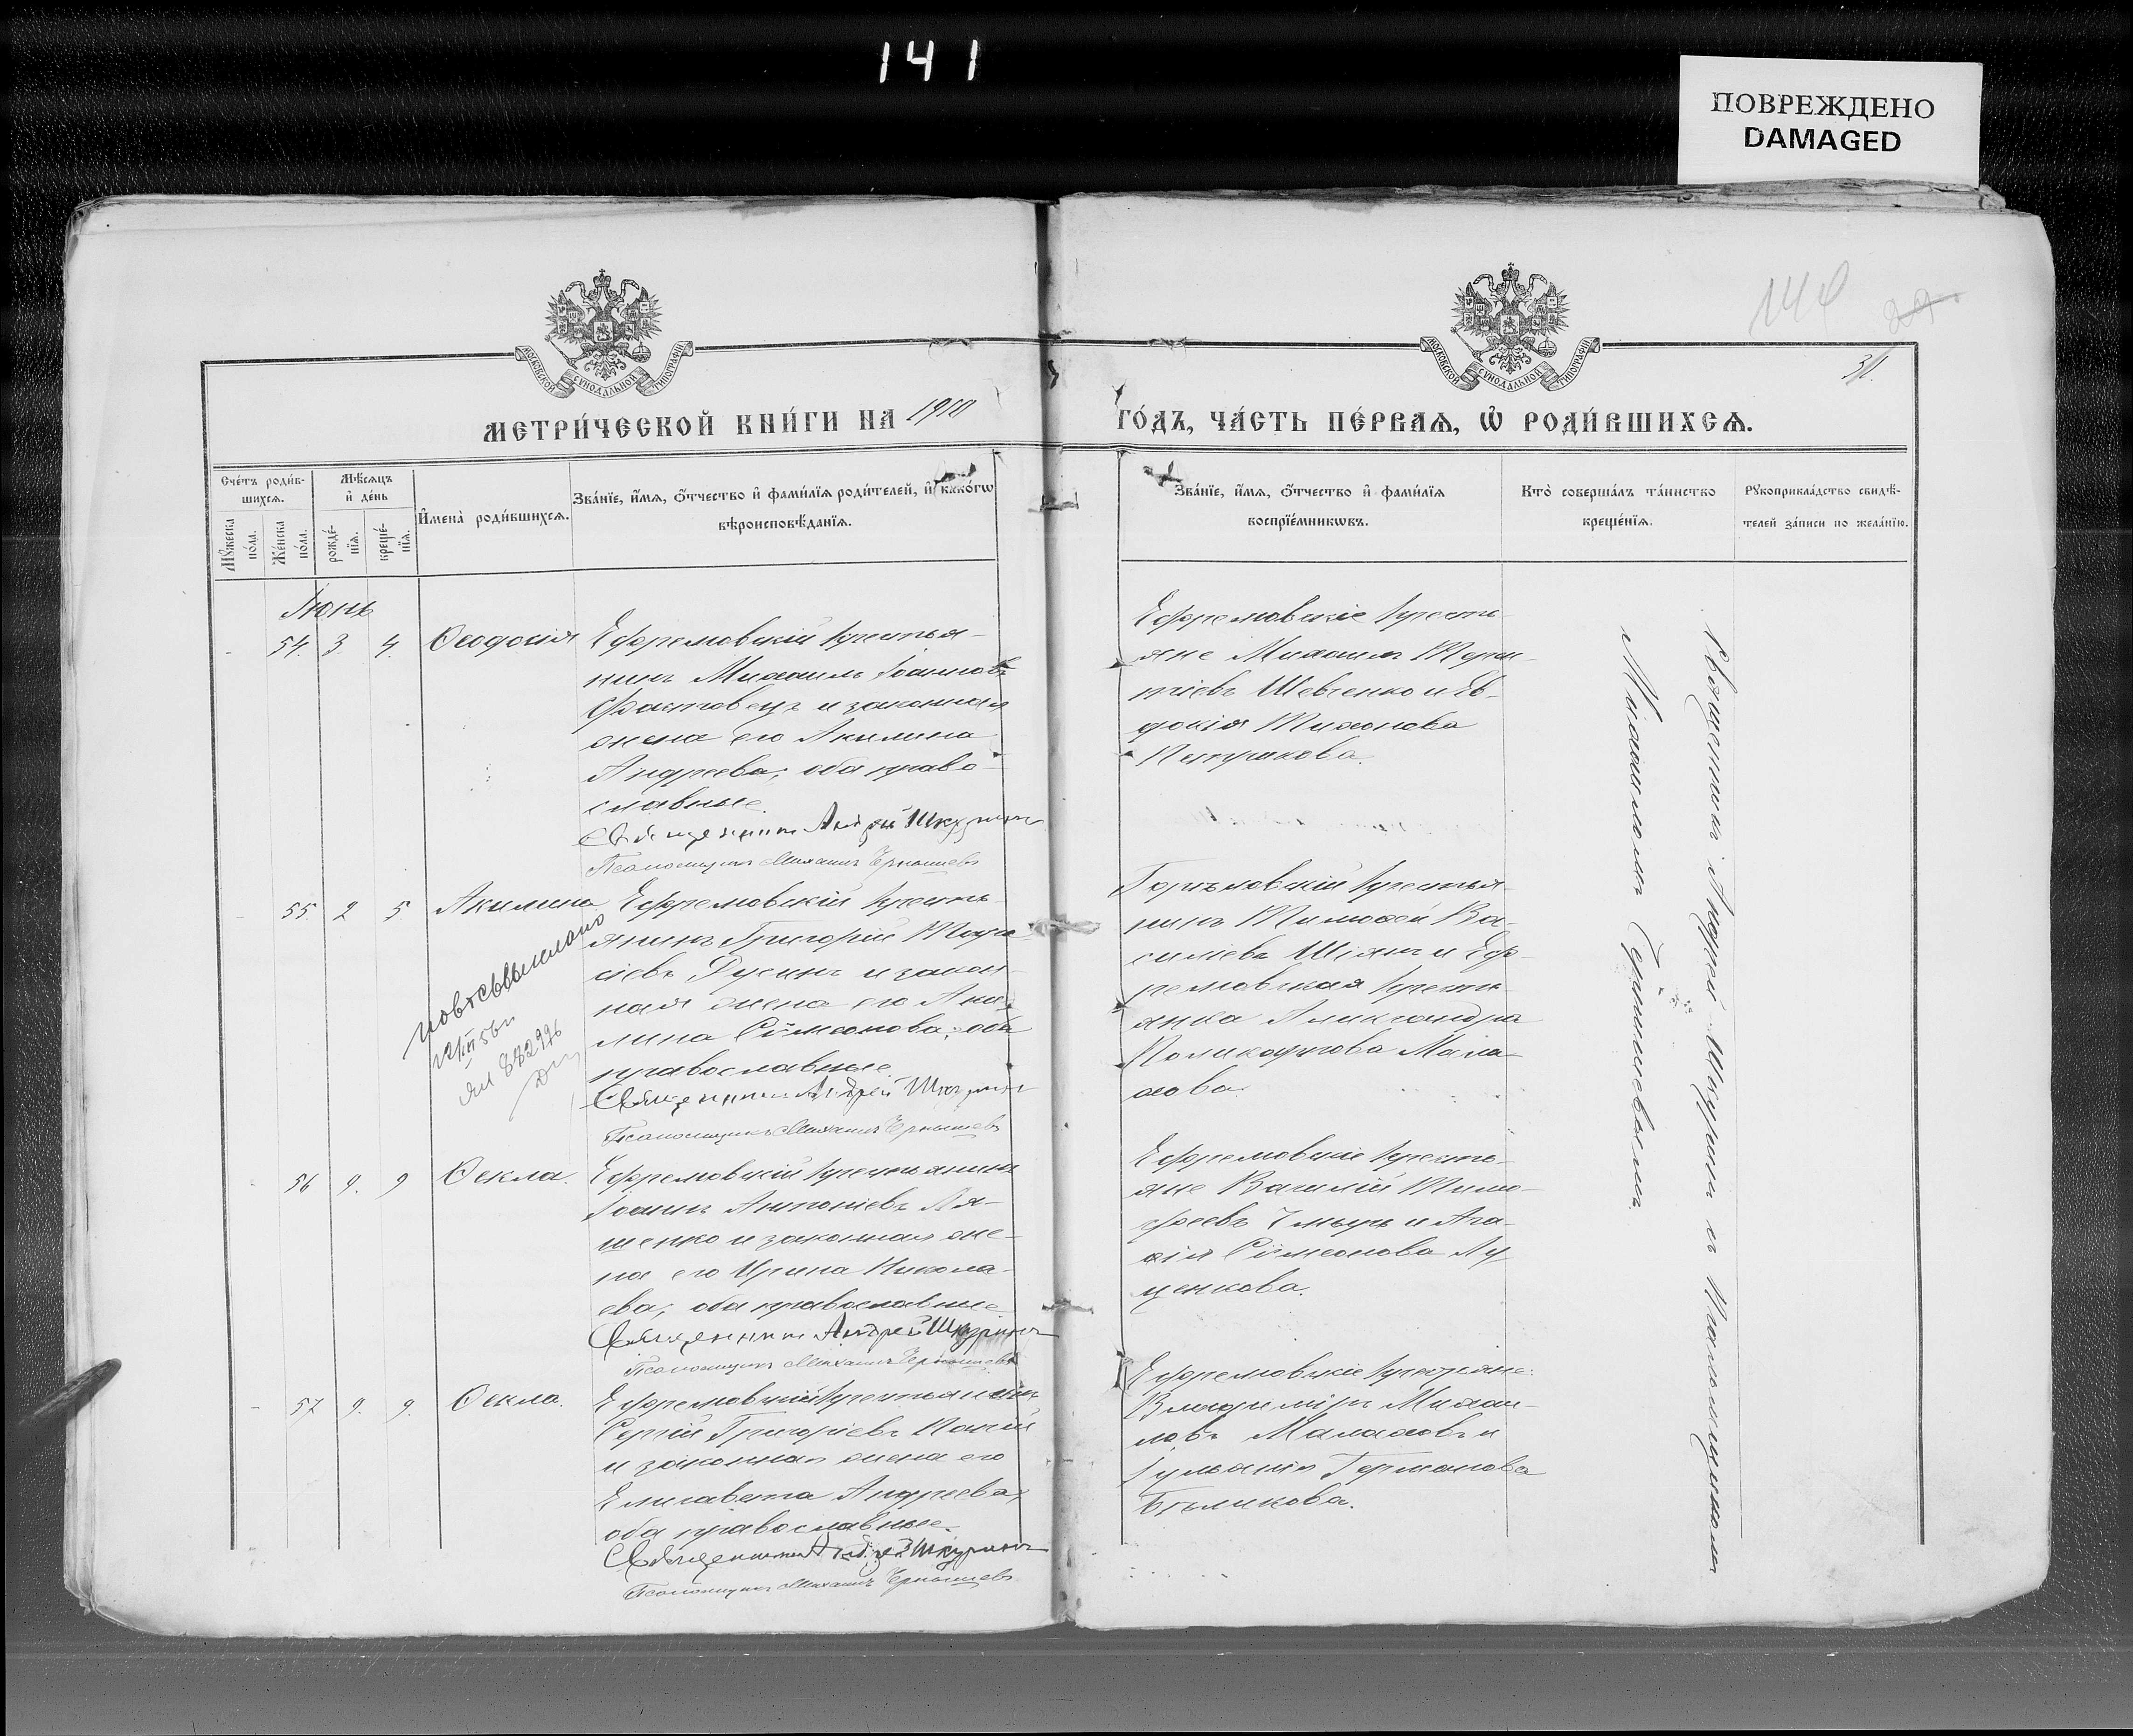 141
ПОВРЕЖДЕНО
DAMAGED
МОСКОВСКОЙ СУНОДАЛЬНОЙ ТИПОГРАФІИ
МОСКОВСКОЙ СУНОДАЛЬНОЙ ТИПОГРАФІИ
31.
МЕТРИ́ЧЕСКОЙ КНИ́ГИ НА 1910
ГО́ДЪ, ЧА́СТЬ ПЕ́РВАѦ, Ѡ҆ РОДИ́ВШИХСѦ.
Сче́тъ роди́в-
шихсѧ.
Мꙋ́жеска
по́ла.
Же́нска
по́ла.
Мѣ́сѧцъ
и҆ де́нь
рожде́-
нїѧ.
креще́-
нїѧ.
И҆мена̀ роди́вшихсѧ.
Зва́нїе, и҆́мѧ, ѻ҆́тчество и҆ фами́лїѧ роди́телей, и҆ како́гѡ
вѣроисповѣ́данїѧ.
Зва́нїе, и҆́мѧ, ѻ҆́тчество и҆ фами́лїѧ
воспрїе́мникѡвъ.
Кто̀ соверша́лъ та́инство
креще́нїѧ.
Рꙋкоприкла́дство свидѣ́-
телей за́писи по жела́нїю.
Іюнь
54. 3. 4. Ѳеодосія
Ефремовскій крестья-
нинъ Михаилъ Іоанновъ
и законная
жена его Акилина
Андреева; оба право-
славные.
Священникъ Андрей Шкуринъ
Псаломщикъ Михаилъ Чернышевъ
Ефремовскіе кресть-
яне Михаилъ Терен-
тіевъ Шевченко и Ев-
докія Тихонова
Петракова.
55. 2 5 Акилина
Ефремовскій кресть-
янинъ Григорій Тара-
сіевъ Русинъ и закон-
ная жена его Аки-
лина Сѵмеонова; оба
православные
Священникъ Андрей Шкуринъ
Псаломщикъ Михаилъ Чернышевъ
Горѣловскій крестья-
нинъ Тимофей Ва-
силіевъ Шіянъ и Еф-
ремовская кресть-
янка Александра
Поликарпова Мала-
хова.
56 9. 9 Ѳекла.
Ефремовскій крестьянинъ
Іоаннъ Антоніевъ Ля-
шенко и законная же-
на его Ирина Никола-
ева; оба православные
Священникъ Андрей Шкуринъ
Псаломщикъ Михаилъ Чернышевъ
Ефремовскіе кресть-
яне Василій Тимо-
феевъ Чмырь и Ага-
фія Сѵмеонова Лу-
ценкова.
57 9. 9. Ѳекла.
Ефремовскій крестьянинъ
Сергій Григоріевъ
и законная жена его
Елисавета Андреева;
оба православные.
Священникъ Андрей Шкуринъ
Псаломщикъ Михаилъ Чернышевъ
Ефремовскіе крестьяне:
Владиміръ Михаи-
ловъ Малаховъ и
Іуліанія Германова
Бѣликова.
Священникъ Андрей Шкуринъ съ Псаломщикомъ
Михаиломъ Чернышевымъ.